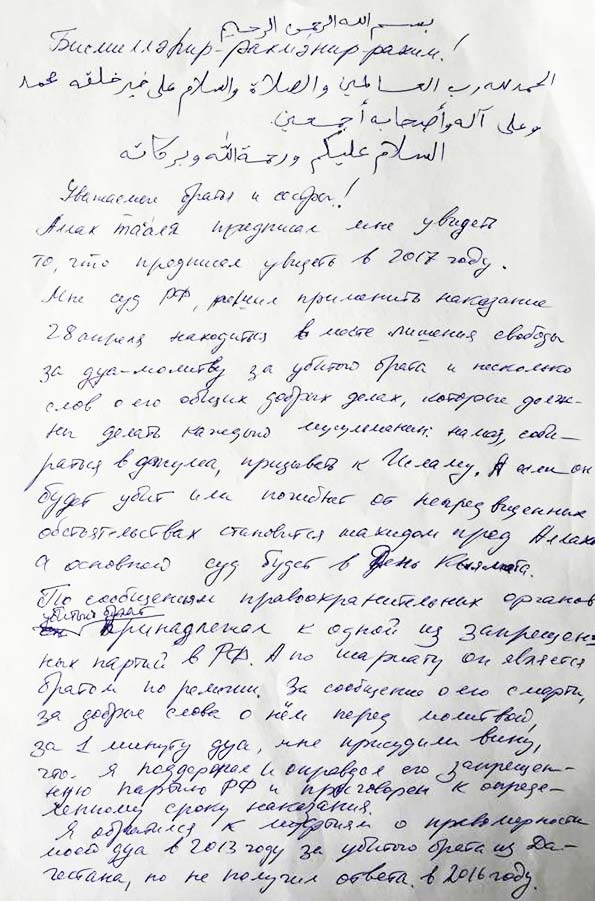 بسم الله الرحمن الرحيم
Бисмилләһир-рахмәнир рахим!
الحمد لله رب العالمين والصلاة والسلام على خير خلقه محمد
وعلى آله وأصحابه أجمعين.
السلام عليكم ورحمة الله وبركاته
Уважаемые братья и сестры!
Аллах таъаля предписал мне увидеть
то, что предписал увидеть в 2017 году.
Мне суд РФ, решил применить наказание
28 апреля находиться в месте лишения свободы
за дуа-молитву за убитого брата и несколько
слов о его общих добрых делах, которые долж-
ны делать каждый мусульманин: намаз, соби-
раться в джума, призывать к Исламу. А если он
будет убит или погибнет от непредвиденных
обстоятельствах становится шахидом пред Аллахом
а основной суд будет в День Кыямата.
По сообщениям правоохранительных органов
убитый брат
принадлежал к одной из запрещен-
ных партий в РФ. А по шариату он является
братом по религии. За сообщение о его смерти,
за добрые слова о нём перед молитвой,
за 1 минуту дуа, мне присудили вину,
что. я поддержал и оправдал его запрещен-
ную партию РФ и приговорен к опреде-
ленному сроку наказания.
Я обратился к муфтиям о правомерности
моего дуа в 2013 году за убитого брата из Да-
гестана, но не получил ответа. в 2016 году.